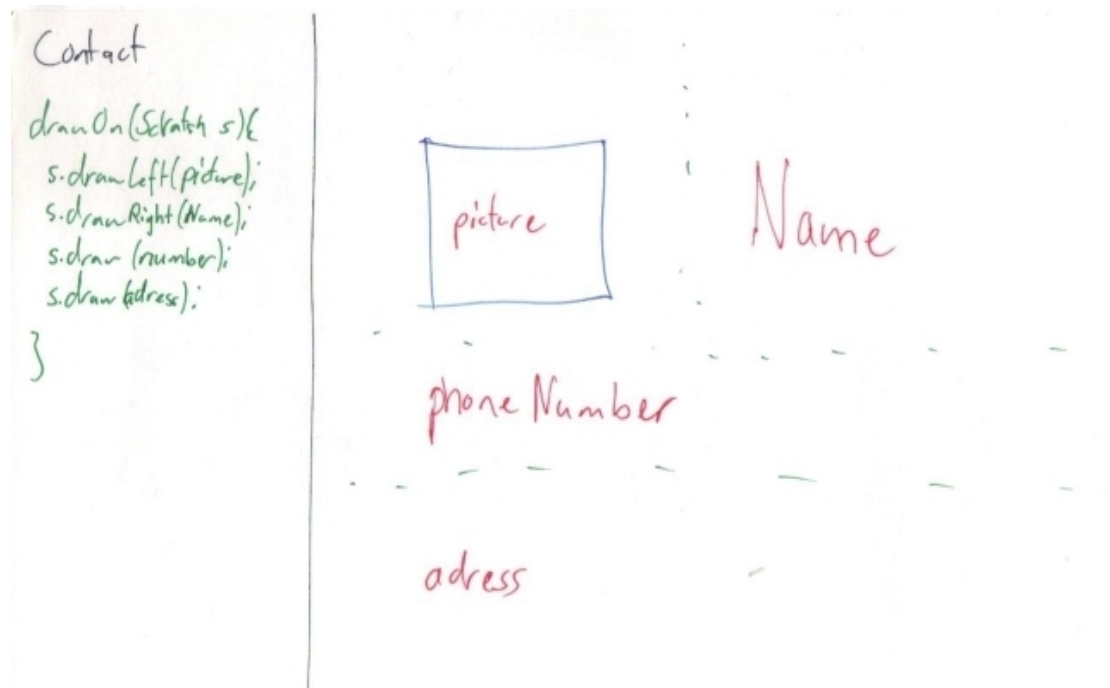 Contact
drawOn(Scratch s){
s.drawLeft(picture);
s.drawRight(Name);
s.draw (number);
s.draw (adress);
}
picture
Name
phoneNumber
adress